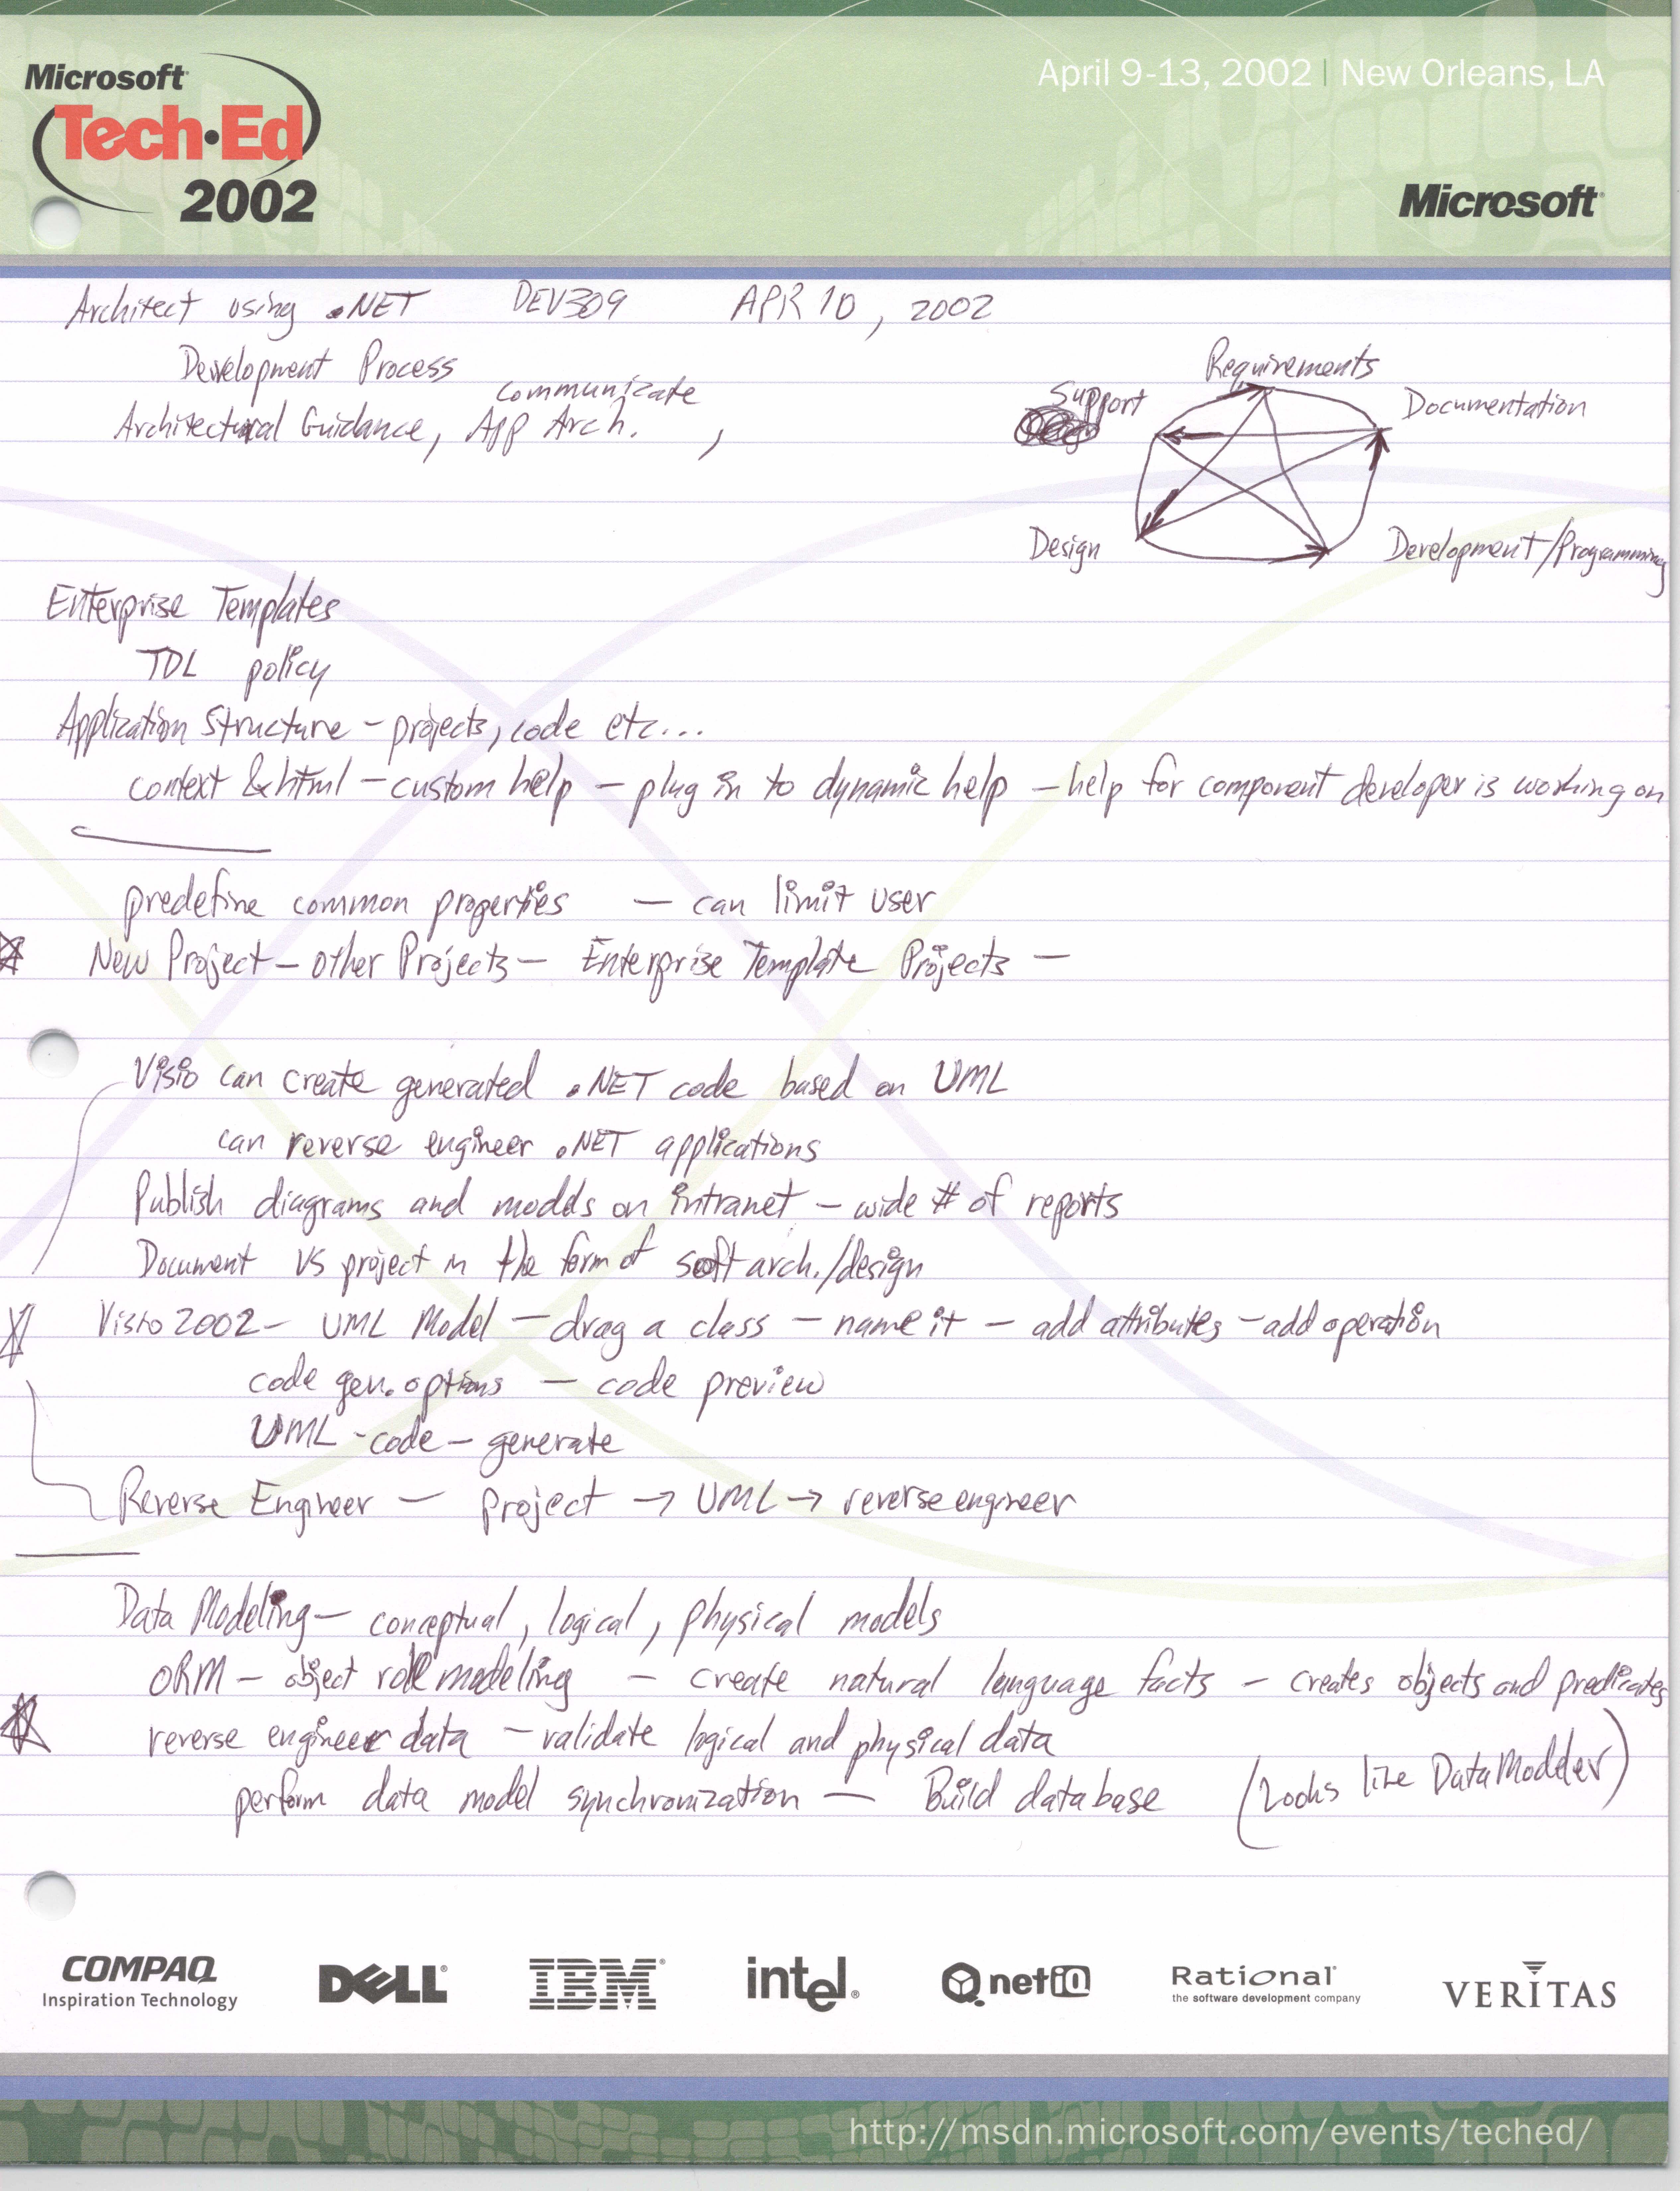 Microsoft
Tech·Ed
2002
April 9-13, 2002 | New Orleans, LA
Microsoft
Architect using .NET DEV309 APR 10, 2002
Development Process
communicate
Architectural Guidance, App Arch. ,
Requirements
Support
Documentation
Design
Development/Programming
Enterprise Templates
TDL policy
Application Structure - projects, code etc...
context & html - custom help - plug in to dynamic help - help for component developer is working on
predefine common properties - can limit user
New Project - Other Projects - Enterprise Template Projects -
Visio can create generated .NET code based on UML
can reverse engineer .NET applications
Publish diagrams and models on intranet - wide # of reports
Document VS project in the form of soft arch./design
Visio 2002 - UML Model - drag a class - name it - add attributes - add operation
code gen. options - code preview
UML - code - generate
Reverse Engineer - project → UML → reverse engineer
Data Modeling - conceptual, logical, physical models
ORM - object role modeling - create natural language facts - creates objects and predicates
reverse engineer data - validate logical and physical data
perform data model synchronization - Build database (Looks like DataModeler)
COMPAQ
Inspiration Technology
DELL
IBM
intel
netiQ
Rational
the software development company
VERITAS
http://msdn.microsoft.com/events/teched/